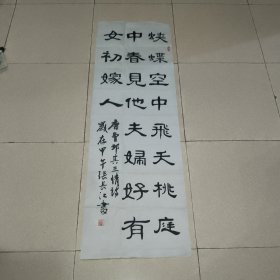 蛺蝶空中飛夭桃庭
中春見他夫婦好有
女初嫁人
唐曹邺其三情詩
歲在甲午張長江書